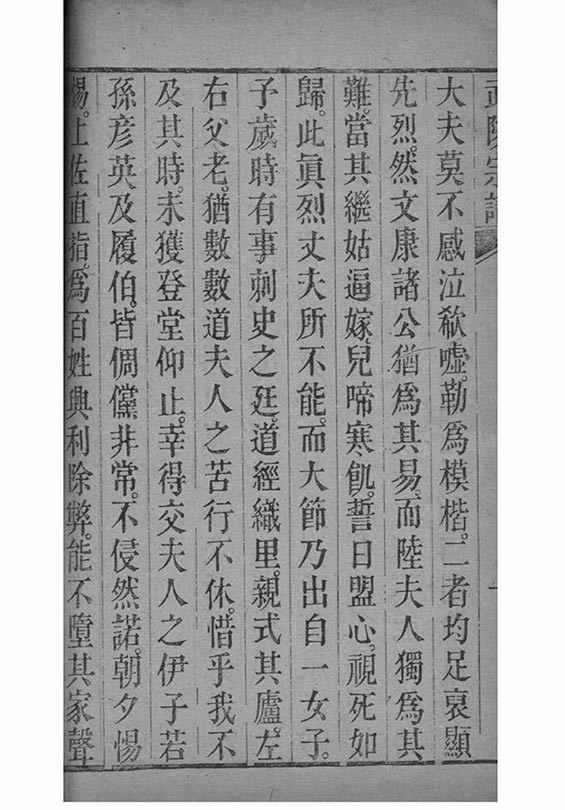 武陵宗譜
大夫莫不感泣欷噓。勒爲模楷。二者均足哀顯
先烈。然文康諸公猶爲其易。而陸夫人獨爲其
難。當其繼姑逼嫁。兒啼寒飢。誓日盟心。視死如
歸。此眞烈丈夫所不能。而大節乃出自一女子。
予歲時有事刺史之廷。道經織里。親式其廬。左
右父老。猶數數道夫人之苦行不休。惜乎我不
及其時。未獲登堂仰止。幸得交夫人之伊子若
孫彥英及履伯。皆倜儻非常。不侵然諾。朝夕惕
惕。上佐直指。爲百姓興利除弊。能不墮其家聲